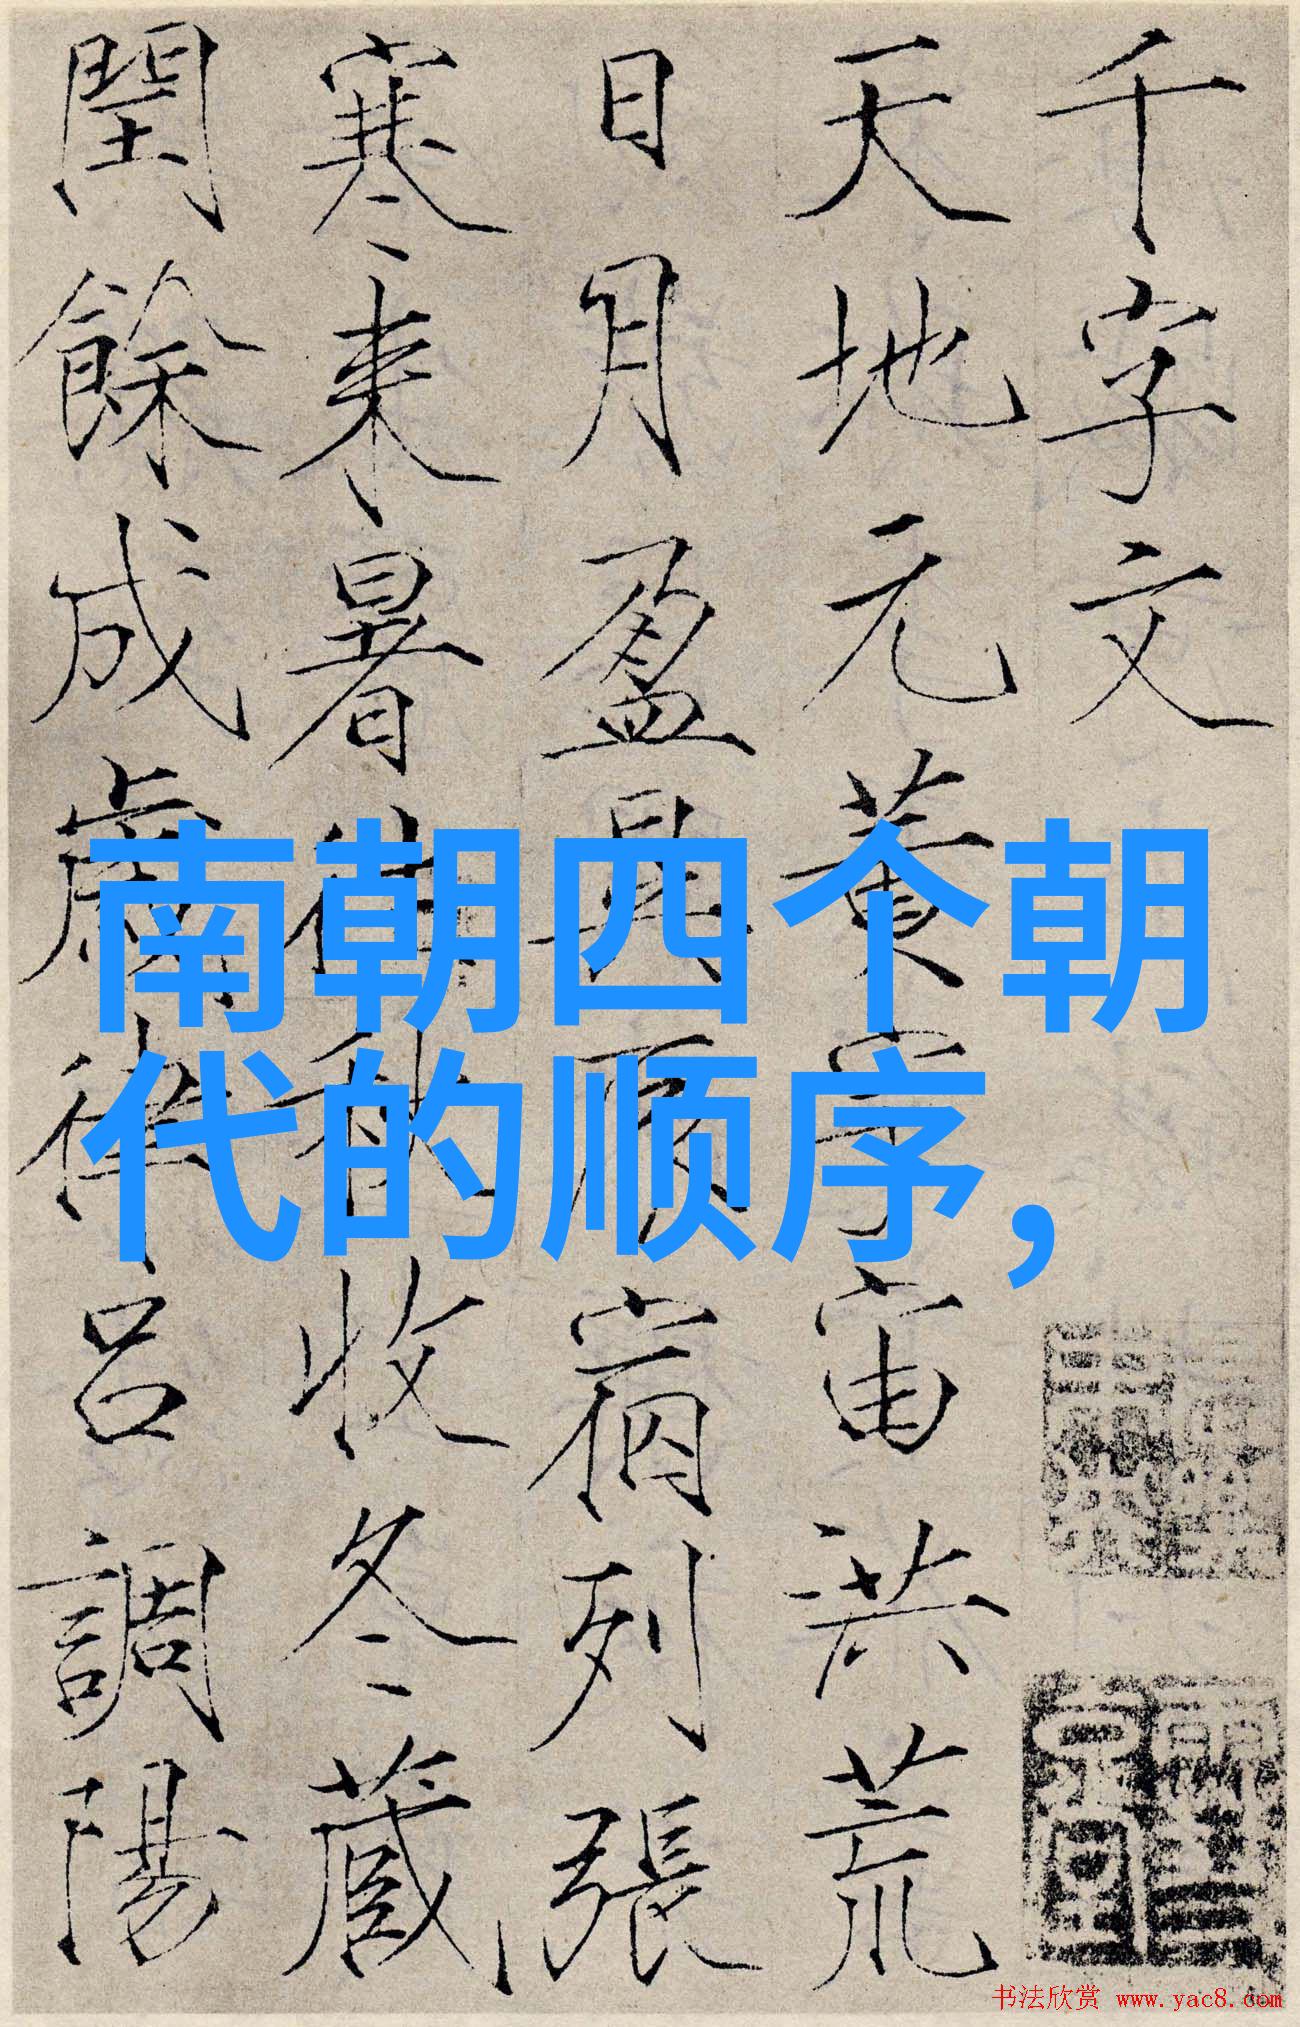 千字文
天地元黄宇宙洪荒
日月盈昃辰宿列張
寒来暑往秋收冬蔵
閏餘成歳律吕調陽
南朝四个朝
代的顺序，
书法欣赏 www.yac8.com